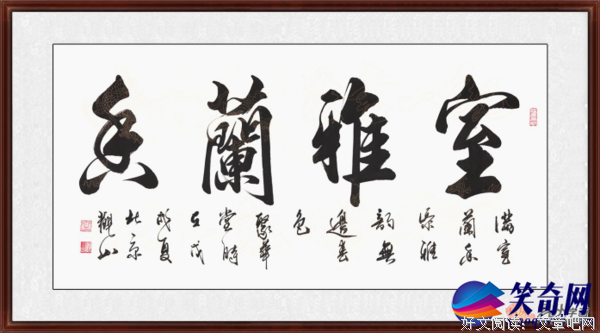 室雅蘭香
滿室
蘭香
添雅
韵無
邊春
色
聚華
堂時
在戊
戌夏
北京
觀山
笑奇网
好文阅读：文章吧网